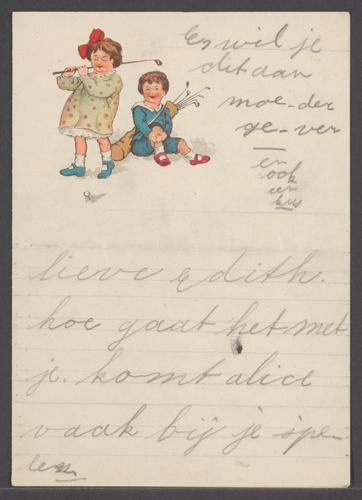 En wil je
dit aan
moe-der
ge-ver
en
ook
een
kus
lieve Edith.
hoe gaat het met
je. komt alice
vaak bij je spe-
len